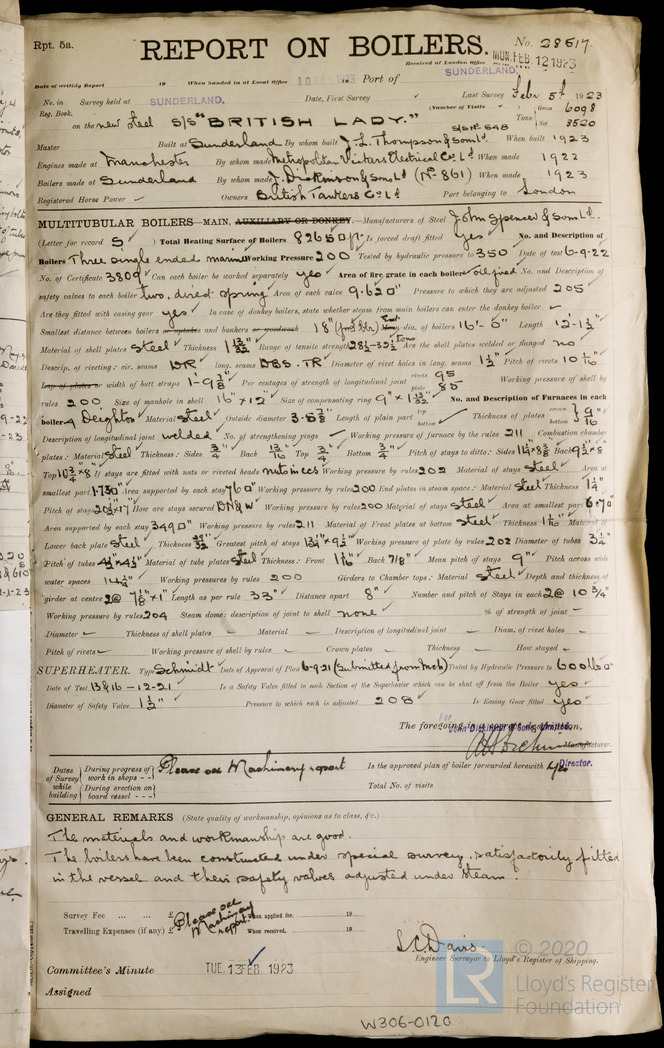 Rpt. 5a.
REPORT ON BOILERS.
No. 28517
Received at London Office MON. FEB. 12 1923
Date of writing Report 19 When handed in at Local Office 10 Port of SUNDERLAND.
No. in Survey held at SUNDERLAND. Date, First Survey Last Survey Feb 5th 1923
Reg. Book. (Number of Visits ) Gross 6098
on the new steel S/S "BRITISH LADY." Tons Net 3520
Master Built at Sunderland By whom built J. L. Thompson & Sons Ld. S/S No 548 When built 1923
Engines made at Manchester By whom made Metropolitan Vickers Electrical Co. Ld When made 1922
Boilers made at Sunderland By whom made J. Dickinson & Sons Ld (No 861) When made 1923
Registered Horse Power Owners British Tankers Co. Ld Port belonging to London
MULTITUBULAR BOILERS—MAIN, AUXILIARY OR DONKEY.—Manufacturers of Steel John Spencer & Sons Ld.
(Letter for record S) Total Heating Surface of Boilers 8265 Is forced draft fitted Yes No. and Description of
Boilers Three single ended marine Working Pressure 200 Tested by hydraulic pressure to 350 Date of test 6-9-22
No. of Certificate 3809 Can each boiler be worked separately yes Area of fire grate in each boiler oil fired No. and Description of
safety valves to each boiler two, direct spring Area of each valve 9.62 Pressure to which they are adjusted 205
Are they fitted with easing gear yes In case of donkey boilers, state whether steam from main boilers can enter the donkey boiler —
Smallest distance between boilers or uptakes and bunkers or woodwork 18" dia. of boilers 16'-0" Length 12'-1½"
Material of shell plates Steel Thickness 1 Range of tensile strength 28½-32½ tons Are the shell plates welded or flanged no
Descrip. of riveting: cir. seams DR long. seams DBS. TR Diameter of rivet holes in long. seams 1½" Pitch of rivets 10
Lap of plates or width of butt straps 1-9 Per centages of strength of longitudinal joint rivets 95 plate 85 Working pressure of shell by
rules 200 Size of manhole in shell 16" x 12" Size of compensating ring 9" x 1 No. and Description of Furnaces in each
boiler 4 Deighton Material Steel Outside diameter 3-5 Length of plain part top bottom Thickness of plates crown bottom 9/16"
Description of longitudinal joint welded No. of strengthening rings — Working pressure of furnace by the rules 211 Combustion chamber
plates: Material Steel Thickness: Sides ¾" Back Top ¾" Bottom ¾" Pitch of stays to ditto: Sides Back
Top 10¾" x 8" If stays are fitted with nuts or riveted heads nuts in ccs Working pressure by rules 202 Material of stays Steel Area at
smallest part 1.73 Area supported by each stay 76 Working pressure by rules 200 End plates in steam space: Material Steel Thickness 1¼"
Pitch of stays How are stays secured DN & W Working pressure by rules 200 Material of stays Steel Area at smallest part
Area supported by each stay 349 Working pressure by rules 211 Material of Front plates at bottom Steel Thickness Material of
Lower back plate Steel Thickness Greatest pitch of stays Working pressure of plate by rules 202 Diameter of tubes
Pitch of tubes Material of tube plates Steel Thickness: Front Back 7/8" Mean pitch of stays 9" Pitch across wide
water spaces 14½" Working pressures by rules 200 Girders to Chamber tops: Material Steel Depth and thickness of
girder at centre 2@ 7½" x 1" Length as per rule 33" Distance apart 8" Number and pitch of Stays in each 2@ 10¾"
Working pressure by rules 204 Steam dome: description of joint to shell none % of strength of joint —
Diameter — Thickness of shell plates Material — Description of longitudinal joint — Diam. of rivet holes —
Pitch of rivets — Working pressure of shell by rules — Crown plates — Thickness — How stayed —
SUPERHEATER. Type Schmidt Date of Approval of Plan 6-9-21 (Submitted from Mch) Tested by Hydraulic Pressure to 600
Date of Test 13 & 16-12-21 Is a Safety Valve fitted to each Section of the Superheater which can be shut off from the Boiler yes
Diameter of Safety Valve 1½" Pressure to which each is adjusted 208 Is Easing Gear fitted yes
The foregoing is a correct description,
For John Dickinson & Sons, Limited.
Manufacturer.
Director.
Dates of Survey while building During progress of work in shops - - During erection on board vessel - - - Please see Machinery report Is the approved plan of boiler forwarded herewith Yes
Total No. of visits
GENERAL REMARKS (State quality of workmanship, opinions as to class, &c.)
The materials and workmanship are good.
The boilers have been constructed under special survey, satisfactorily fitted
in the vessel and their safety valves adjusted under steam.
Survey Fee ... ... £ Please see Machinery report. When applied for, 19
Travelling Expenses (if any) £ When received, 19
L. C. Davis.
Engineer Surveyor to Lloyd's Register of Shipping.
Committee's Minute TUE. 13 FEB. 1923
Assigned
© 2020
Lloyd's Register
Foundation
W306-0120